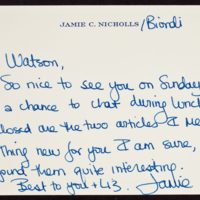 JAMIE C. NICHOLLS/Biondi
Watson,
So nice to see you on Sunday
a chance to chat during lunch
closed are the two articles I me
thing new for you I am sure,
found them quite interesting.
Best to you + 43. Jamie